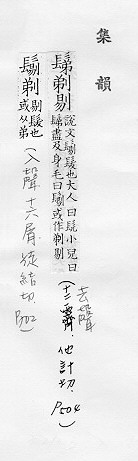 集韻
鬀剃剔 說文鬄髮也大人曰髡小兒曰
鬀盡及身毛曰鬄或作剃剔
(去聲
十二霽.他計切.
P504)
鬄剃 剔髮也
或从弟
(入聲十六屑.徒結切.
P702)